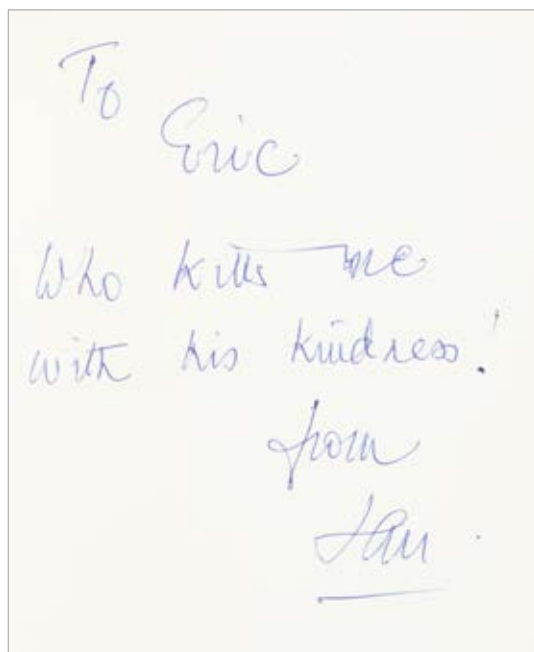 To
Eric
Who kills me
with his kindness!
from
Ian.